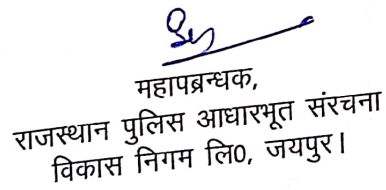 महापब्रन्धक,
राजस्थान पुलिस आधारभूत संरचना
विकास निगम लि0, जयपुर।